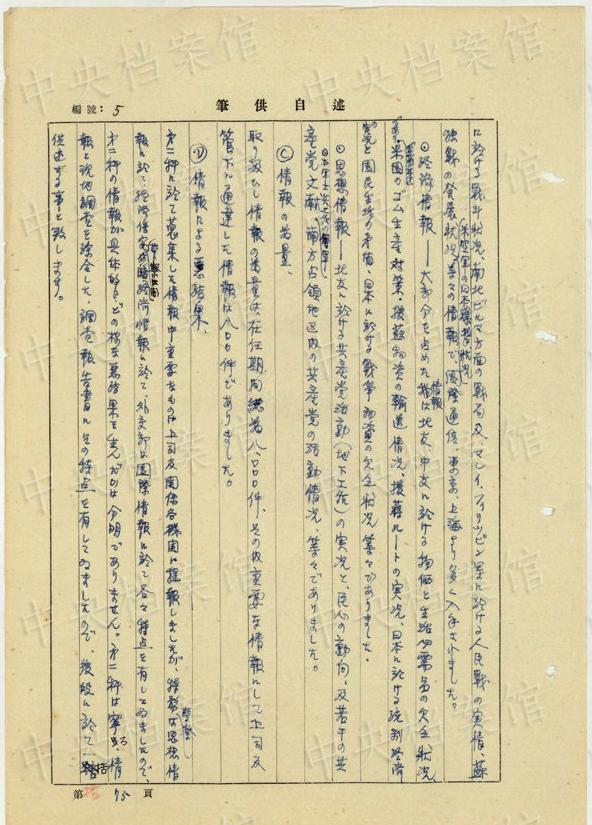 編號：5
筆供述自
に於ける戦斗状況、南北ビルマ方面の戦局及、マレイ、フィリッピン等に於ける人民戦の実情、蘇
独戦の発展状況、等々の情報で国際通信、東京、上海より多く入手されました。
米空軍の日本爆撃状況
◎経済情報——大部分を占めた情報は北支、中支に於ける物価と生活必需品の欠乏状況
米国のゴム生産対策、援蘇物資の輸送情況、援蒋ルートの実況、日本に於ける統制経済
の実況と国民生活の矛盾、日本に於ける戦争物資の欠乏状況等々でありました。
◎思想情報——北支に於ける共産党活動(地下工作)の実況と、民心の動向、及若干の共
産党文献、南方占領地区内の共産党の活動情況、等々でありました。
Ⓒ情報の数量、
取り扱ひし情報の数量は、在任期間総数八、〇〇〇件、その内重要な情報にして上司及
管下に通達した情報は八〇〇件でありました。
Ⓓ情報による悪結果
第二科に於て蒐集した情報中重要なものは上司及関係各機関に提報しましたが、
報に於て、経済は実態経済情報に於て、外交部は国際情報に於て各々特点を有してゐましたので、
第二科の情報が具体的にどの様な悪結果を生んだかは分明でありません。第二科は寧ろ、情
報と現地調査を綜合した、調査報告書にその特点を有してゐましたので、後段に於て一括
供述する事と致します。
第 75 頁
中央档案馆